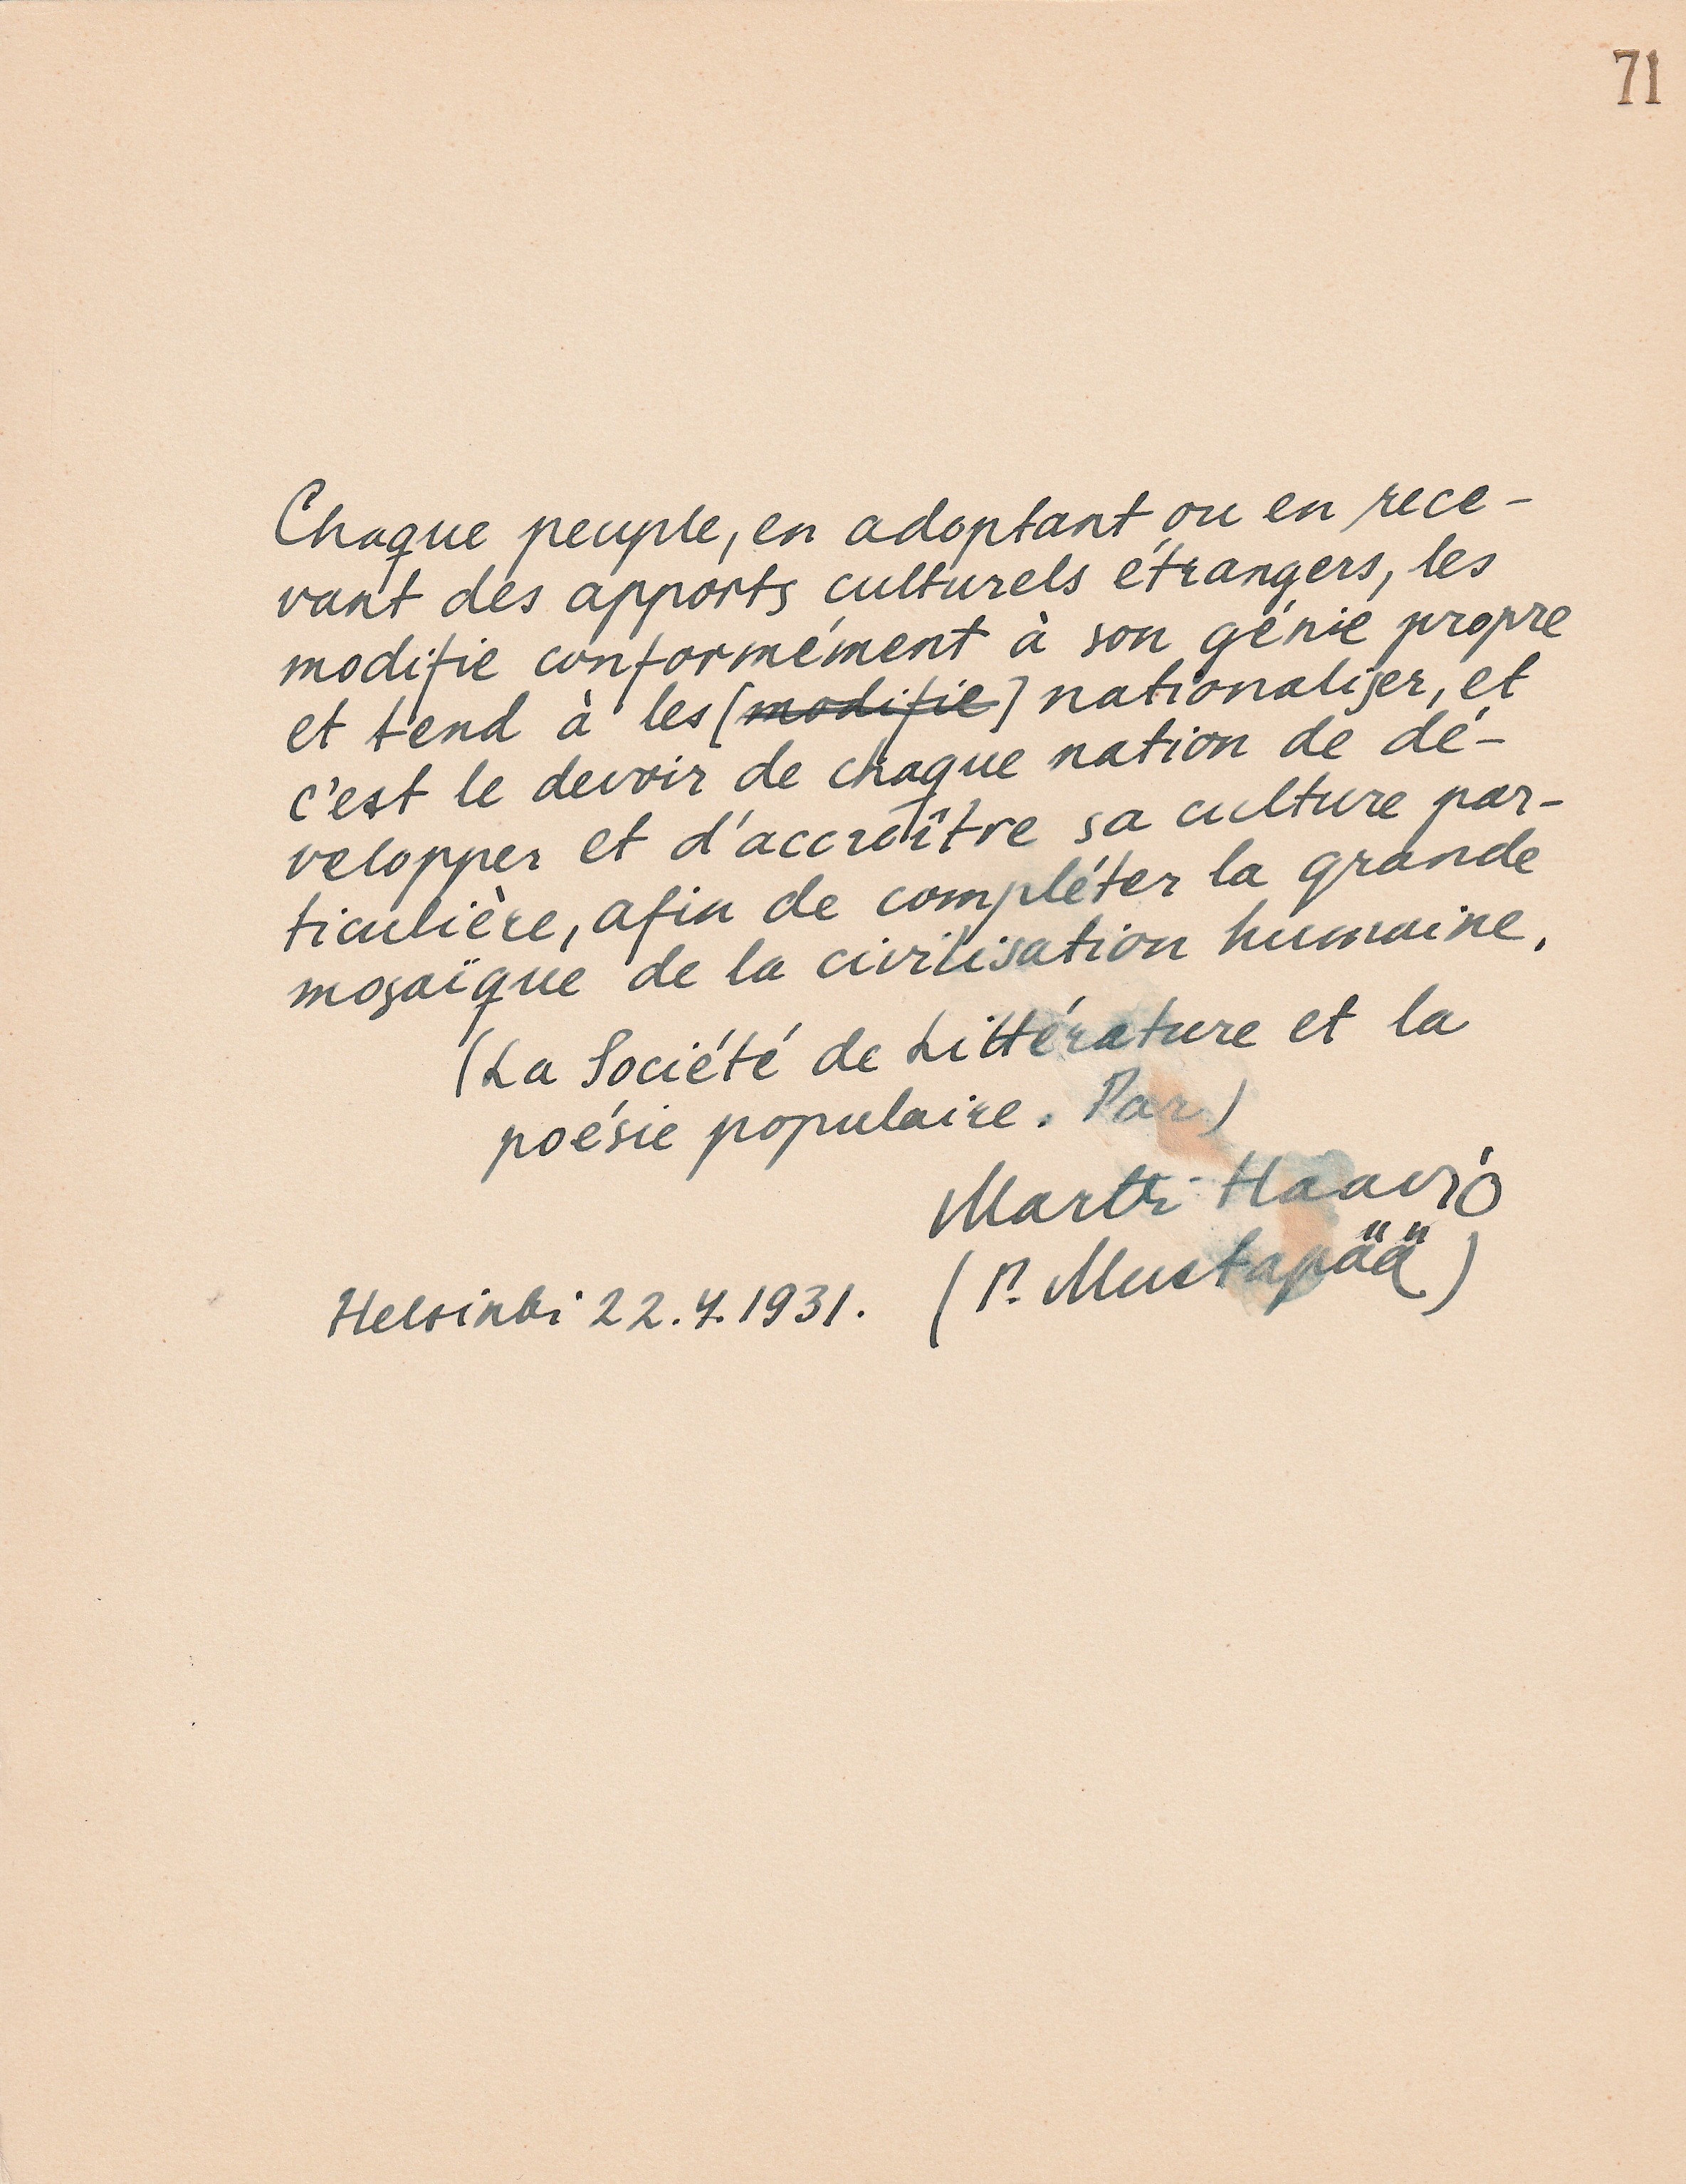 71
Chaque peuple, en adoptant ou en rece-
vant des apports culturels étrangers, les
modifie conformément à son génie propre
et tend à les [modifie] nationaliser, et
c'est le devoir de chaque nation de dé-
velopper et d'accroître sa culture par-
ticulière, afin de compléter la grande
mosaïque de la civilisation humaine.
(La Société de Littérature et la
poésie populaire. Par)
Martti Haavio
(P. Mustapää)
Helsinki 22.4.1931.